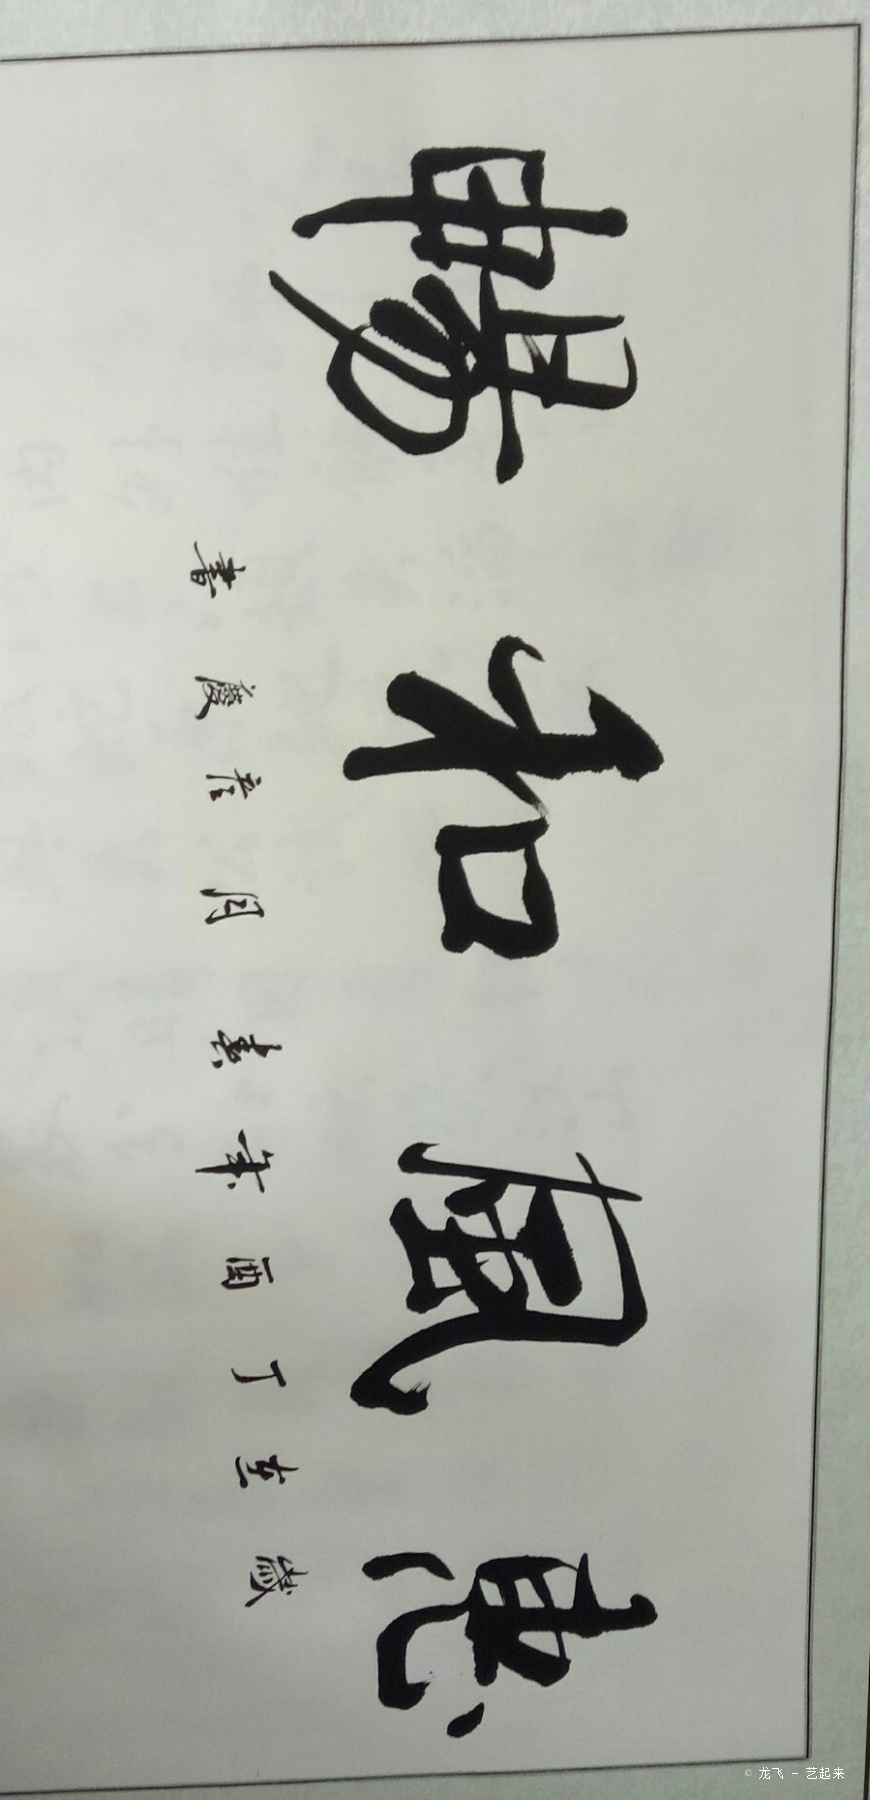 惠風和暢
歲在丁酉年春月彦慶書
© 龙飞 - 艺起来